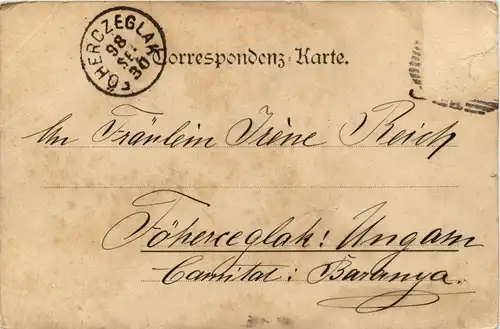 FŐHERCZEGLAK
98
SEP
30
Correspondenz-Karte.
An Fräulein Irène Reich
Főherceglak: Ungarn
Comitat: Baranya.